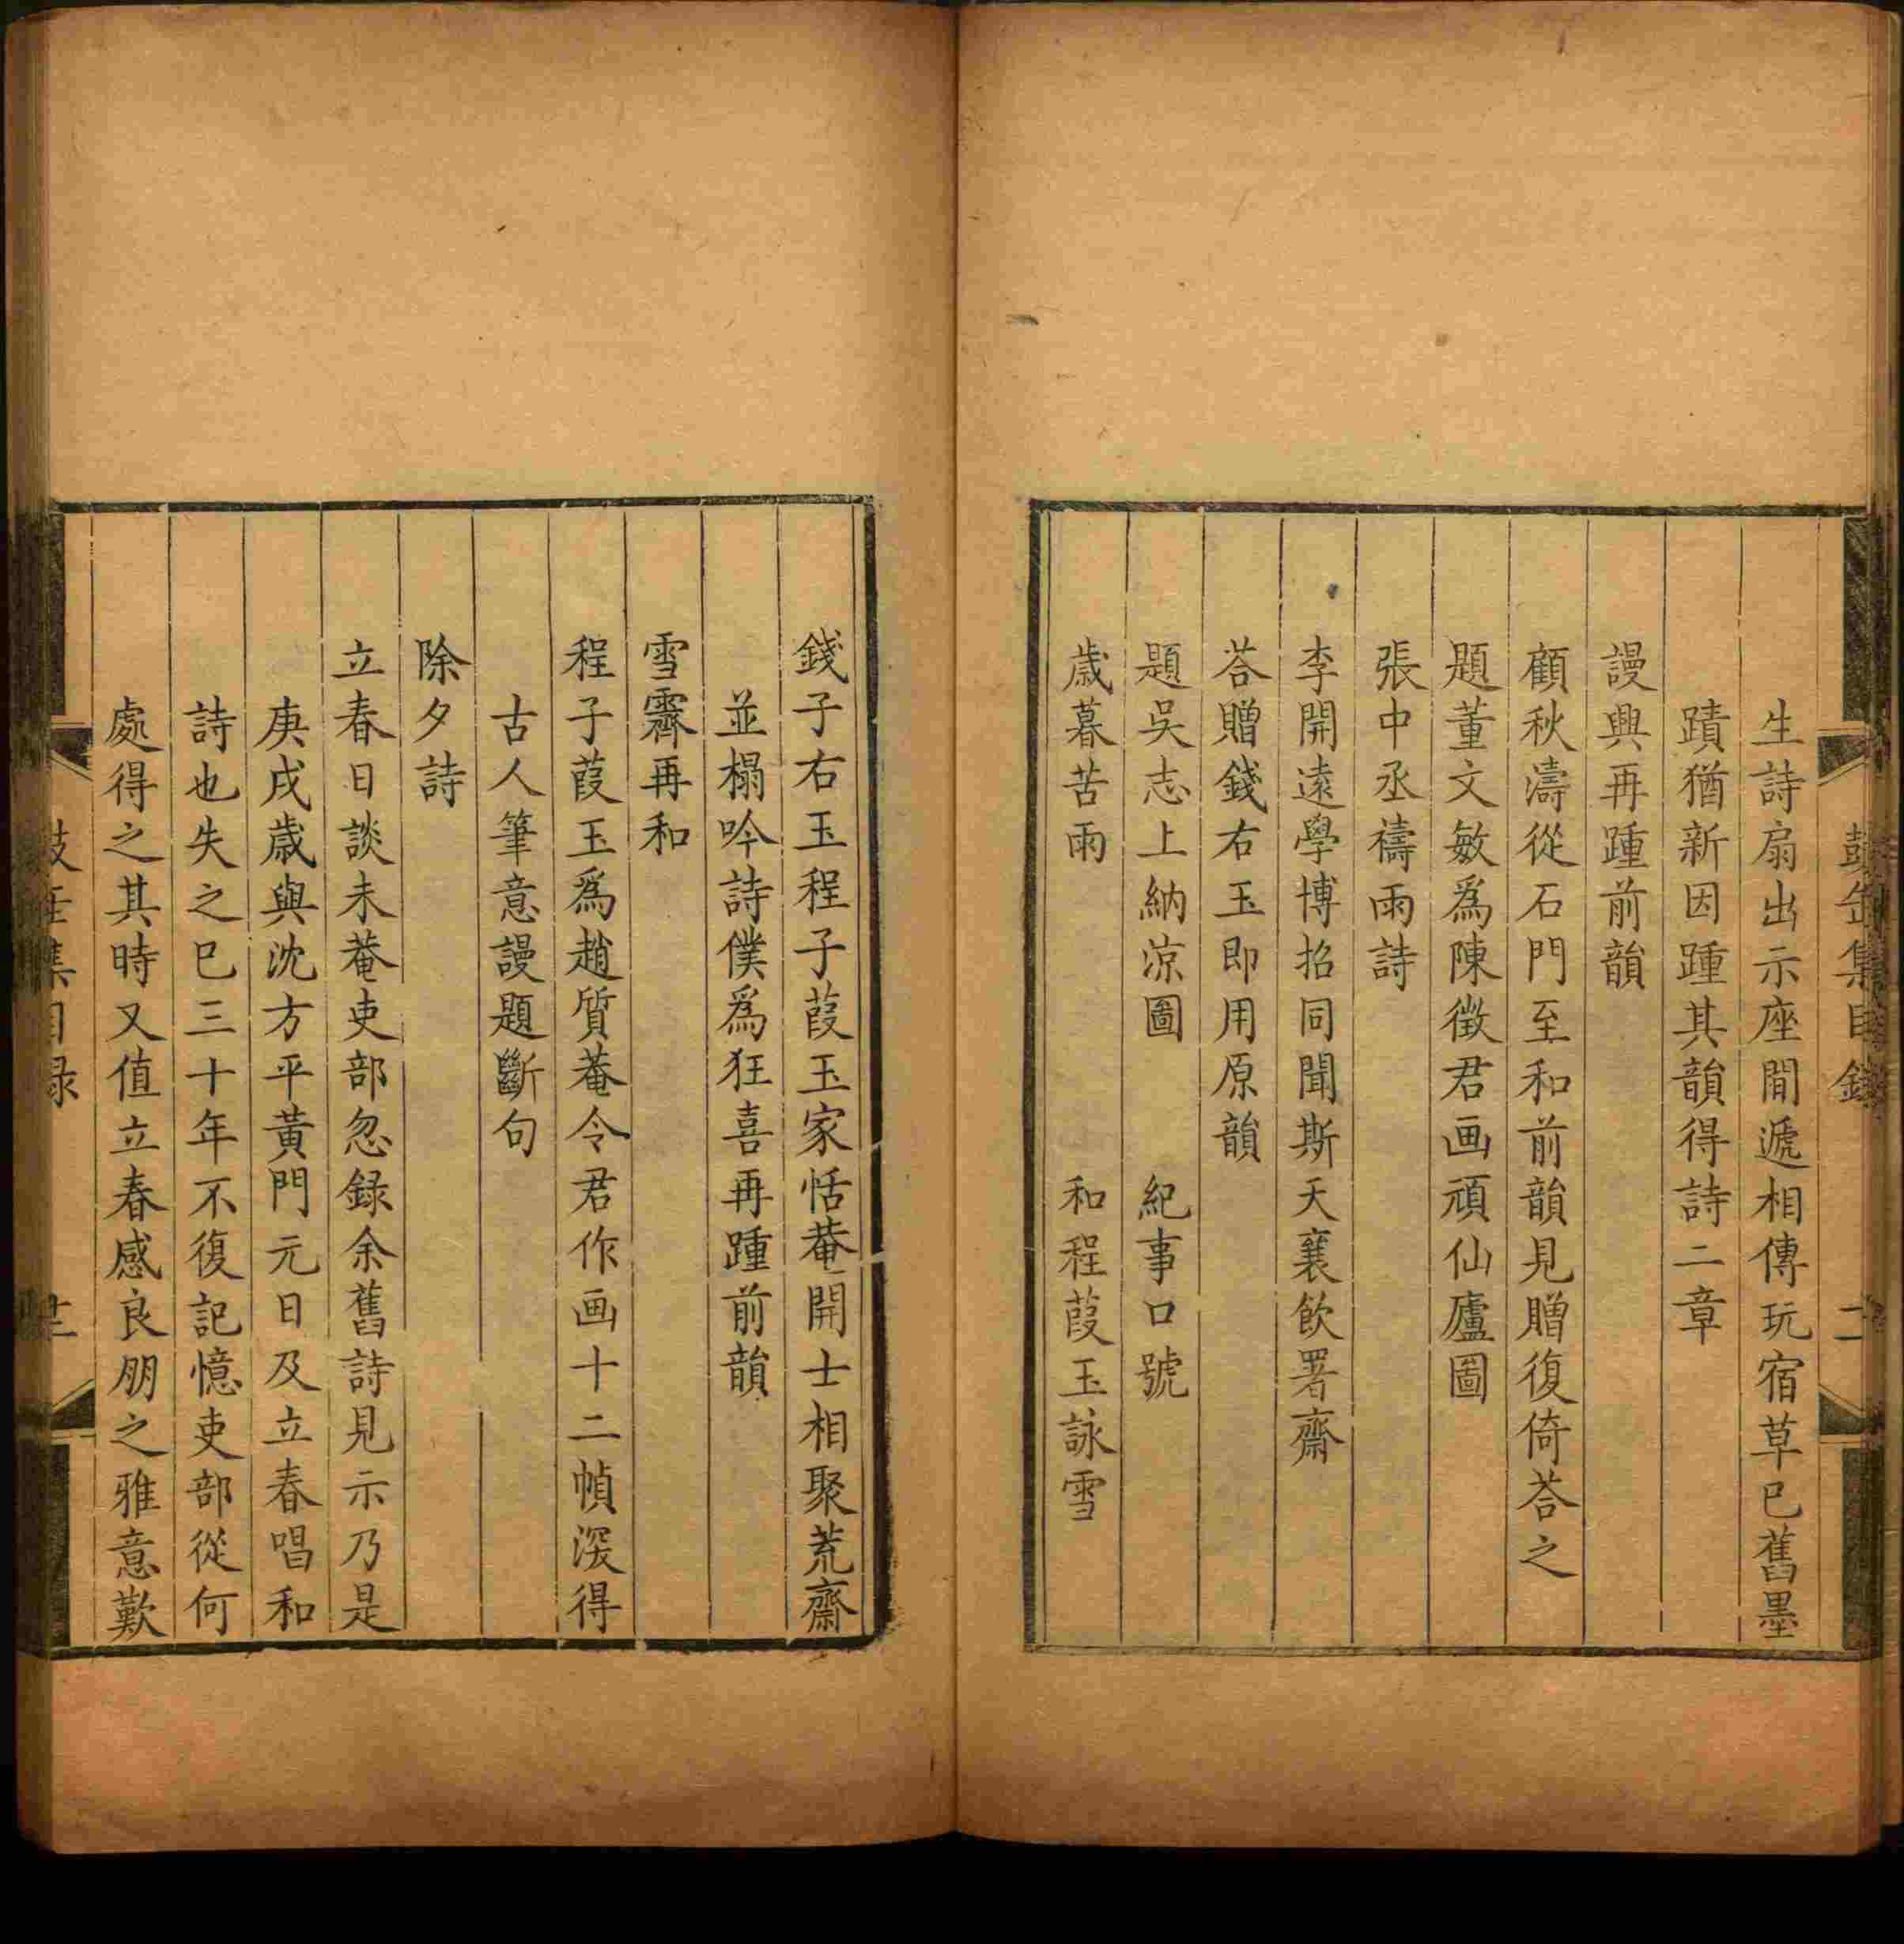 鼓缶集目錄 二
生詩扇出示座間遞相傳玩宿草已舊墨
蹟猶新因踵其韻得詩二章
謾興再踵前韻
顧秋濤從石門至和前韻見贈復倚荅之
題董文敏爲陳徵君画頑仙廬圖
張中丞禱雨詩
李開遠學博招同聞斯天襄飲署齋
荅贈錢右玉即用原韻
題吳志上納涼圖 紀事口號
歲暮苦雨 和程葭玉詠雪
錢子右玉程子葭玉家恬菴開士相聚荒齋
並榻吟詩僕爲狂喜再踵前韻
雪霽再和
程子葭玉爲趙質菴令君作画十二幀深得
古人筆意謾題斷句
除夕詩
立春日談未菴吏部忽録余舊詩見示乃是
庚戌歲與沈方平黃門元日及立春唱和
詩也失之巳三十年不復記憶吏部從何
處得之其時又值立春感良朋之雅意歎
集目録